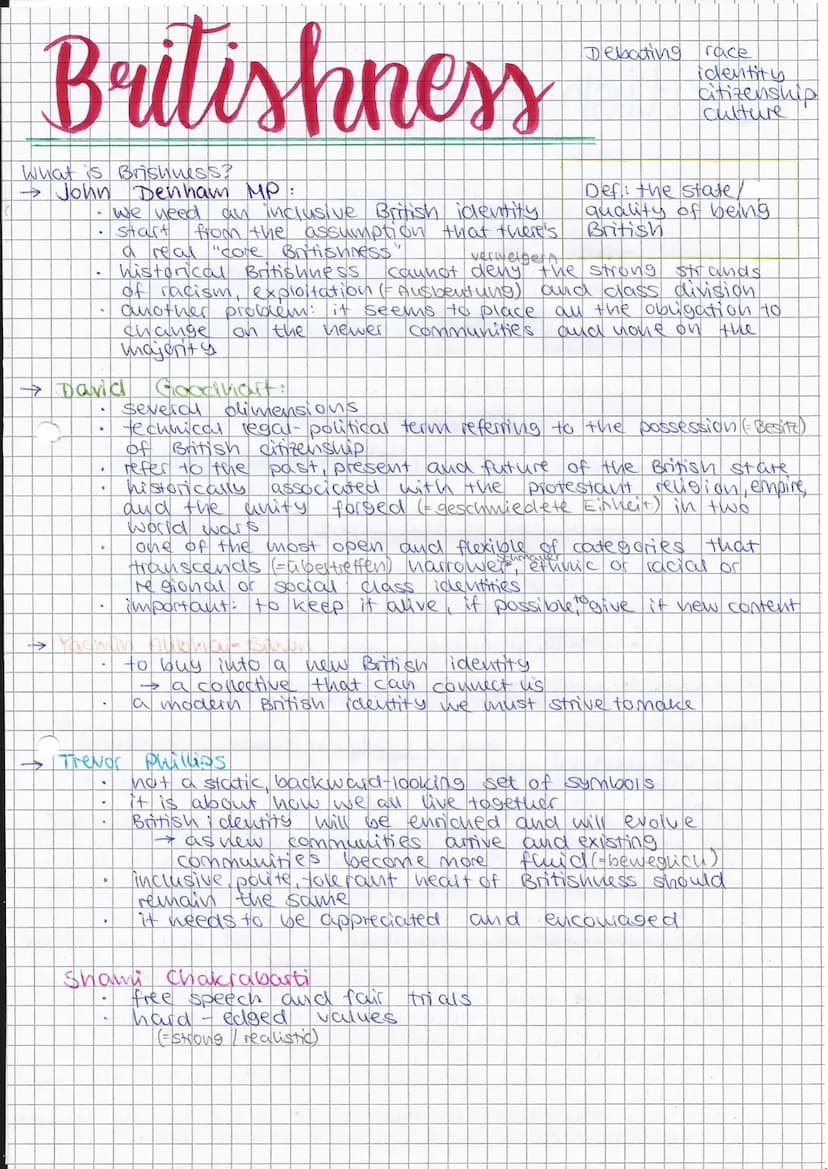 Britishness
Debating race
identity
citizenship
culture
What is Brishness?
→ John Denham MP:
· we need an inclusive British identity
· start from the assumption that there's
a real "core Britishness"
verweigern
· historical Britishness cannot deny the strong strands
of racism, exploitation (= Ausbeutung) and class division
· another problem: it seems to place all the obligation to
change on the newer communities and none on the
majority
Def.: the state/
quality of being
British
→ David Goodhart:
· several dimensions
· technical legal-political term referring to the possession (= Besitz)
of British citizenship
· refer to the past, present and future of the British state
· historically associated with the protestant religion, empire,
and the unity forged (= geschmiedete Einheit) in two
world wars
· one of the most open and flexible of categories that
schmaler
transcends (= übertreffen) narrower, ethnic or racial or
regional or social class identities
· important: to keep it alive, if possible, to give it new content
→ Yasmin
· to buy into a new British identity
→ a collective that can connect us
· a modern British identity we must strive to make
→ Trevor Phillips
· not a static, backward-looking set of symbols
· it is about how we all live together
· British identity will be enriched and will evolve
→ as new communities arrive and existing
communities become more fluid (= beweglich)
· inclusive, polite, tolerant heart of Britishness should
remain the same
· it needs to be appreciated and encouraged
Shami Chakrabarti
· free speech and fair trials
· hard-edged values
(= strong / realistic)